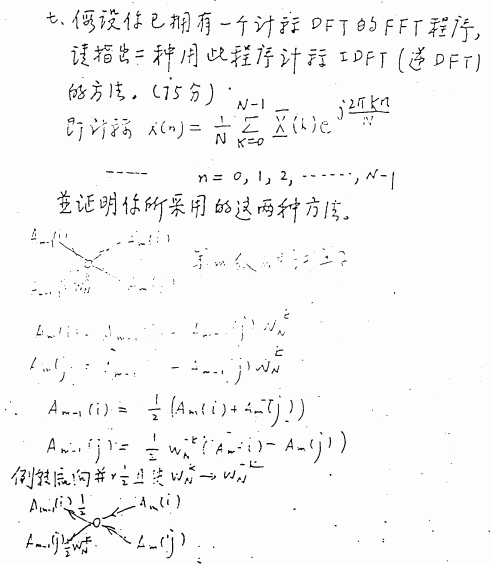 七、假设你已拥有一个计算 DFT 的 FFT 程序,
请指出二种用此程序计算 IDFT (逆 DFT)
的方法。(15分)
即计算 x(n) = 1/N Σ_{K=0}^{N-1} X(k) e^{j 2πKn/N}
----- n = 0, 1, 2, ······, N-1
并证明你所采用的这两种方法。
A_{m-1}(i) A_m(i)
W_N A_m(j)
A_m(j) = A_{m-1} - A_{m-1}(j) W_N^k
∴ A_{m-1}(i) = 1/2 (A_m(i) + A_m(j))
A_{m-1}(j) = 1/2 W_N^{-k} (A_m(i) - A_m(j))
流向并 × 1/2 且使 W_N^k → W_N^{-k}
A_{m-1}(i) 1/2 A_m(i)
A_{m-1}(j) 1/2 W_N^{-k} A_m(j)